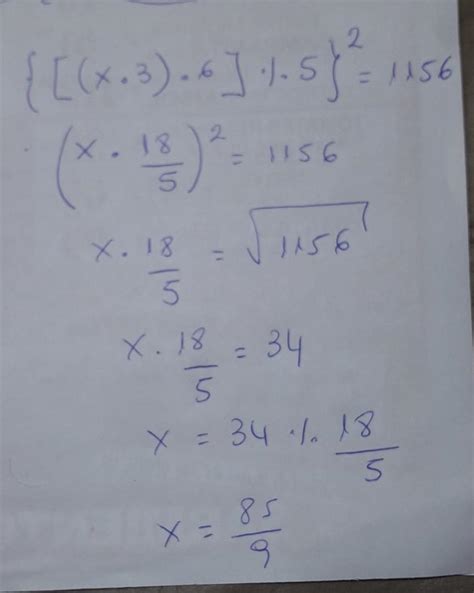 {[(x.3).6] ·/. 5}² = 1156
(x . 18/5)² = 1156
x . 18/5 = √1156
x . 18/5 = 34
x = 34 ·/. 18/5
x = 85/9